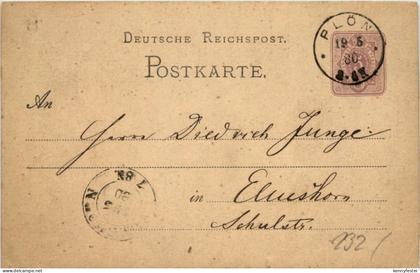 DEUTSCHE REICHSPOST.
POSTKARTE.
PLÖN
19 5
80
An
Herrn Diedrich Junge
in Elmshorn
Schulstr.
7-8N.
232/
kennyfester